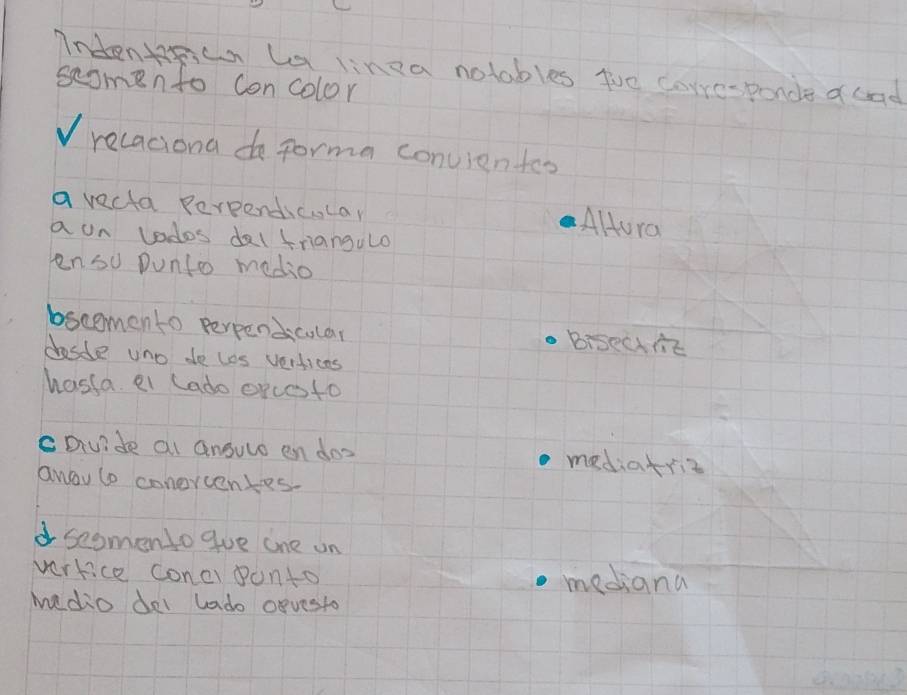 Indentifican La linea notables que corresponde a cad
segmento con color
√ relaciona de forma convientes
a recta Perpendicular
a un lados del triangulo
en su punto medio
• Altura
b segmento perpendicular
desde uno de los vertices
hasta el lado opuesto
• Bisectriz
c Divide al angulo en dos
angulo congruentes
• mediatriz
d segmento que une un
vertice con el punto
medio del lado opuesto
• mediana